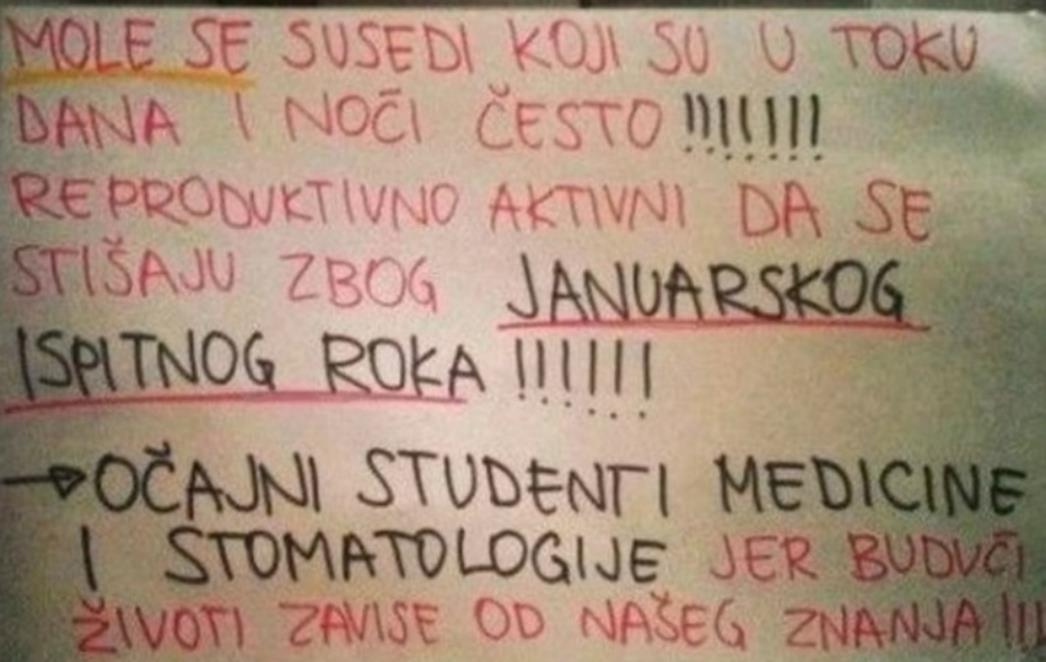 MOLE SE SUSEDI KOJI SU U TOKU
DANA I NOĆI ČESTO !!!!!!!
REPRODUKTIVNO AKTIVNI DA SE
STIŠAJU ZBOG JANUARSKOG
ISPITNOG ROKA !!!!!!
→OČAJNI STUDENTI MEDICINE
I STOMATOLOGIJE JER BUDUĆI
ŽIVOTI ZAVISE OD NAŠEG ZNANJA !!!